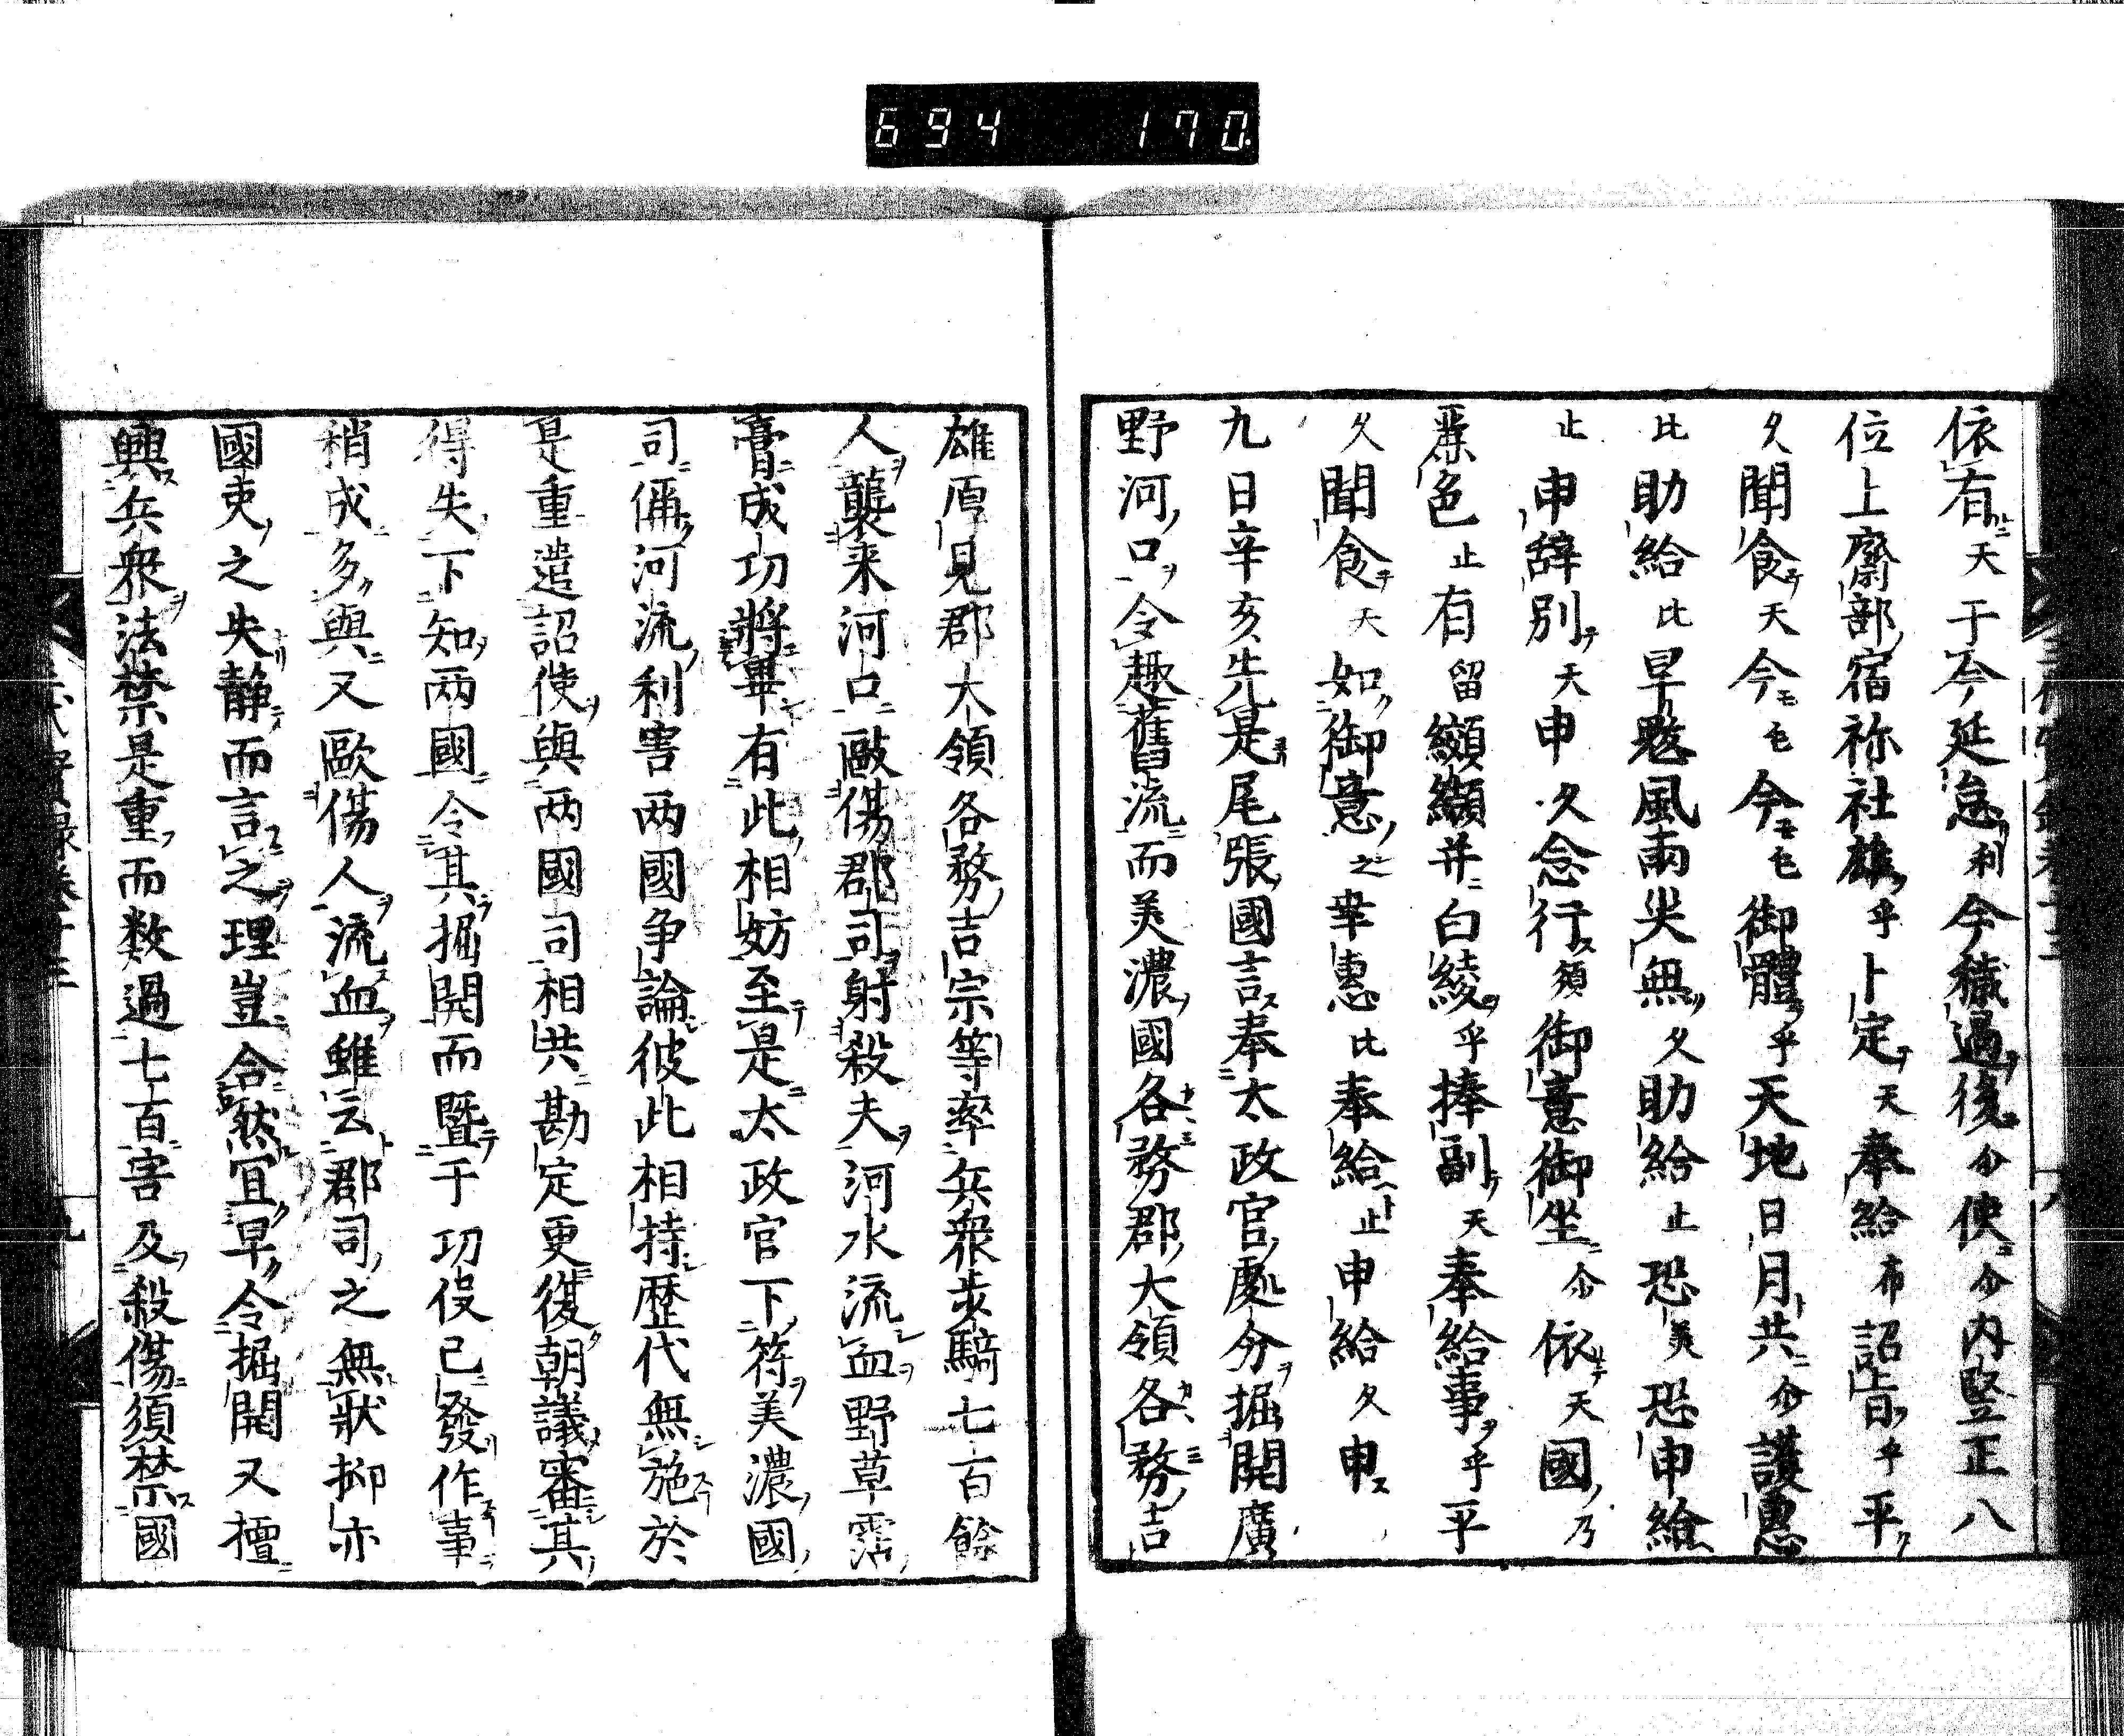 694 170
依有天于今延怠利今穢過後尓使尓内竪正八
位上齋部宿祢社雄乎卜定天奉給布詔旨乎平
久聞食天今毛今毛御體乎天地日月共尓護惠
比助給比早愍風雨灾無久助給止恐美恐申給
止申辞別天申久念行須御意御坐尓依天國乃
藁色止有留纈纈并白綾乎捧副天奉給事乎平
久聞食天如御意之幸惠比奉給止申給久申
九日辛亥先是尾張國言奉太政官處分掘開廣
野河口令趣舊流而美濃國各務郡大領各務吉
雄厚見郡大領各務吉宗等率兵衆歩騎七百餘
人襲来河口毆傷郡司射殺夫河水流血野草霑
膏成功將畢有此相妨至是太政官下符美濃國
司偁河流利害两國争論彼此相持歴代無施於
是重遣詔使與两國司相共勘定更復朝議審其
得失下知两國令其掘開而暨于功役已發作事
稍成多與又歐傷人流血雖云郡司之無狀抑亦
國吏之失静而言之理豈合然冝早令掘開又擅
興兵衆法禁是重而数過七百害及殺傷須禁國
三代實録卷十三
九